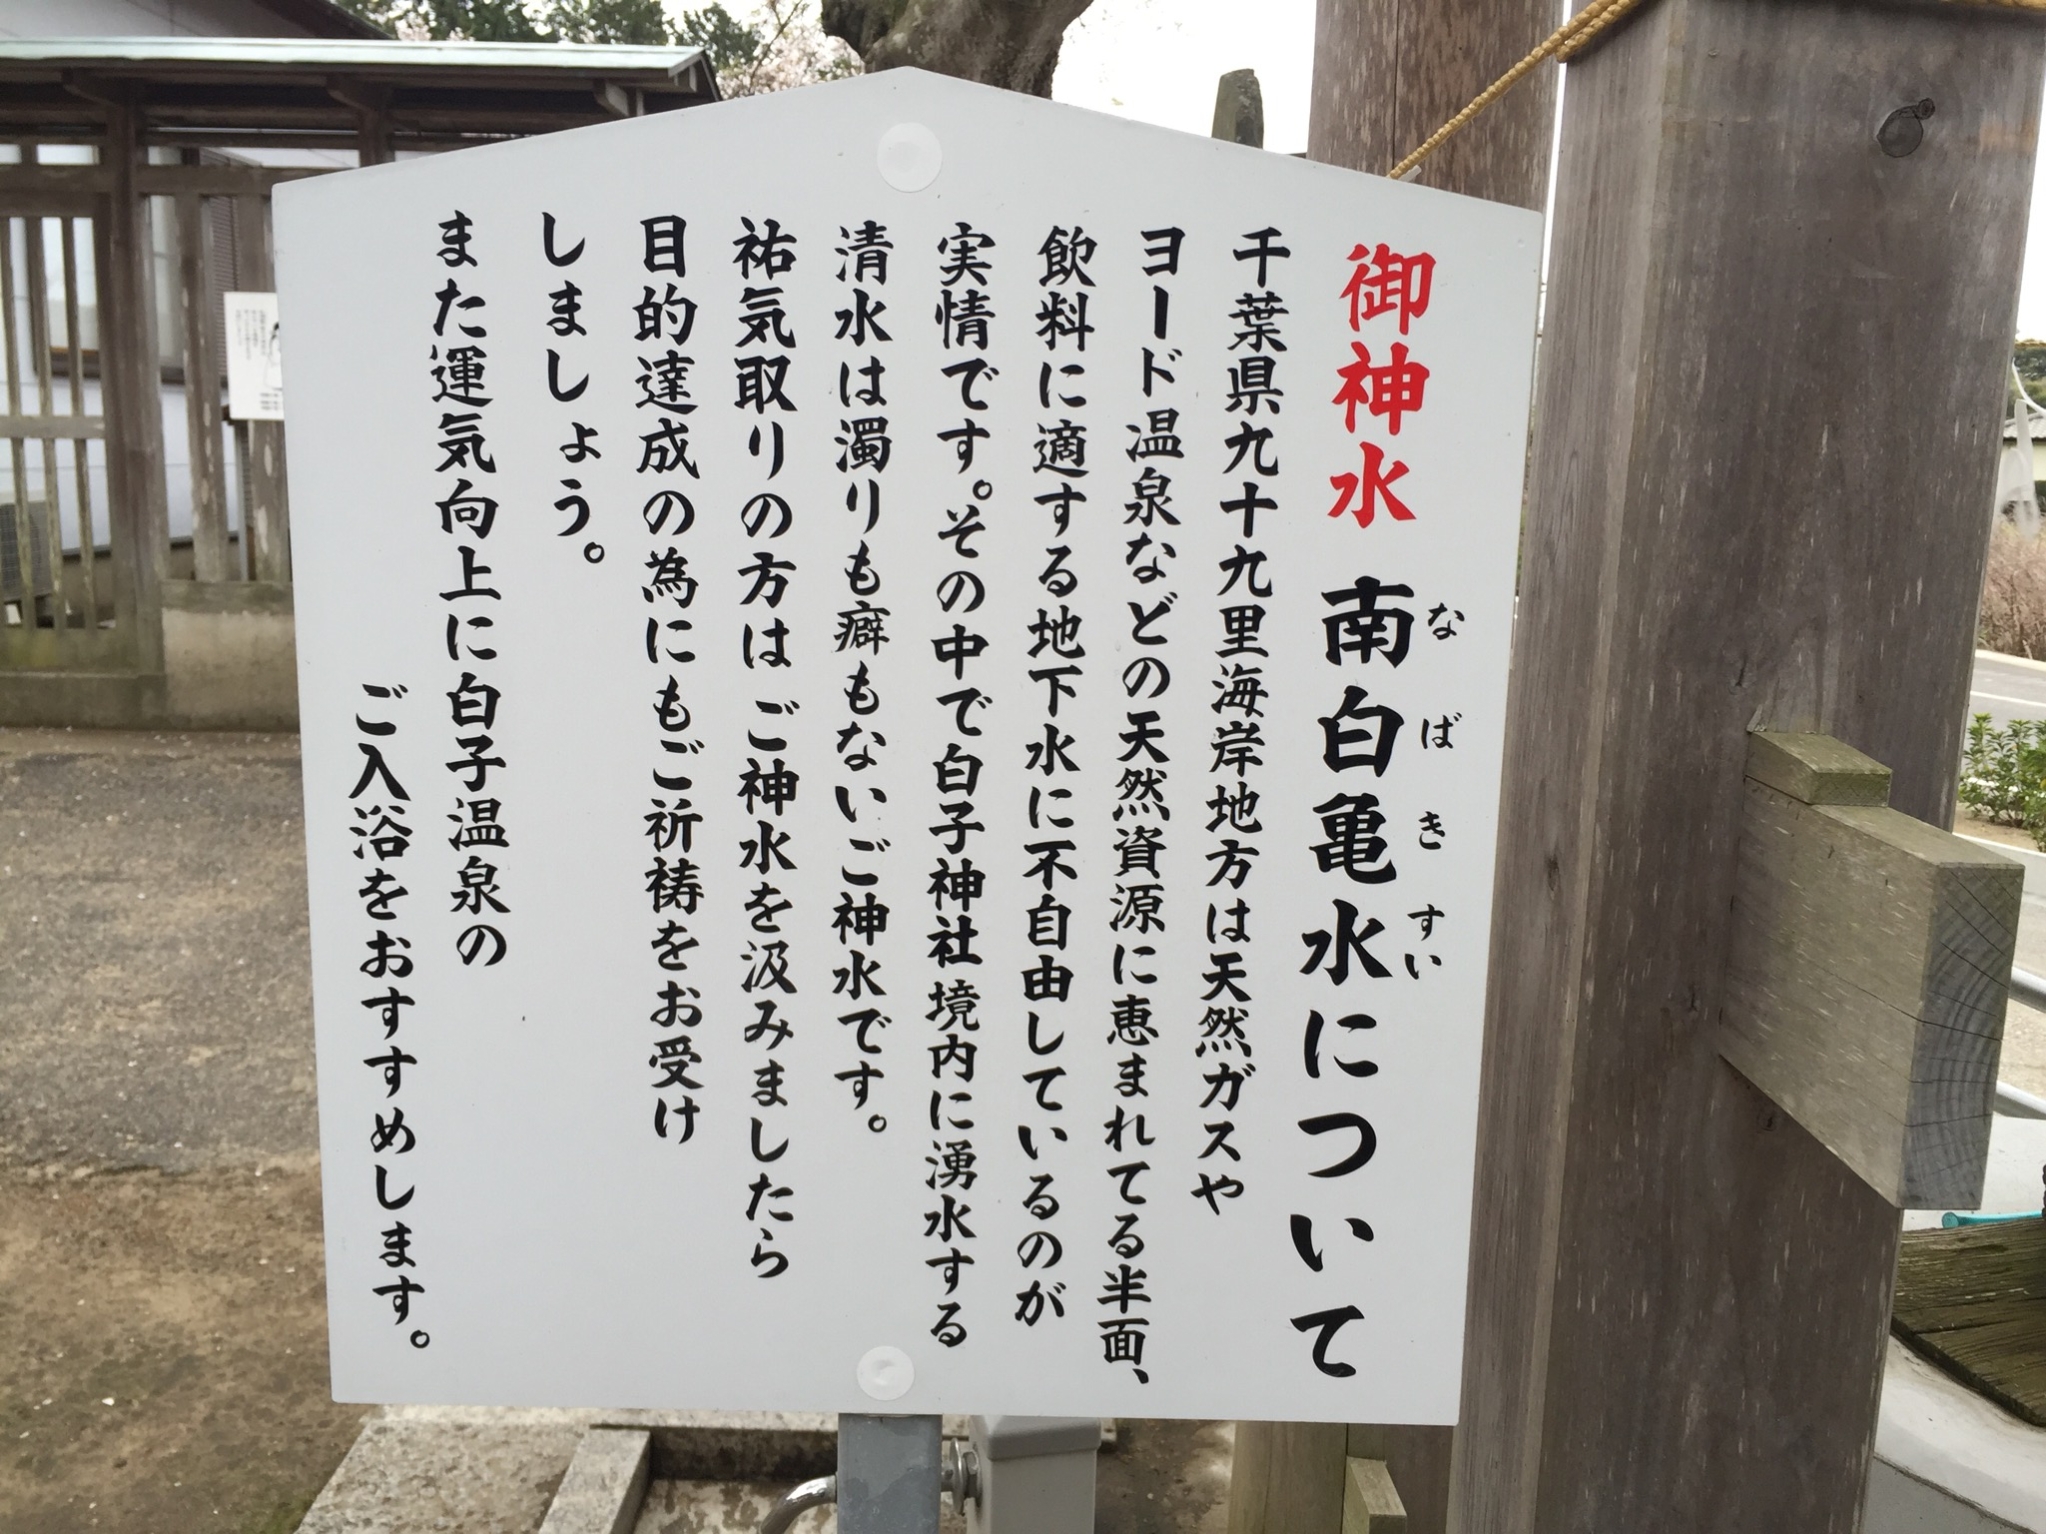 御神水 南白亀水について
なばきすい
千葉県九十九里海岸地方は天然ガスや
ヨード温泉などの天然資源に恵まれてる半面、
飲料に適する地下水に不自由しているのが
実情です。その中で白子神社境内に湧水する
清水は濁りも癖もないご神水です。
祐気取りの方はご神水を汲みましたら
目的達成の為にもご祈祷をお受け
しましょう。
また運気向上に白子温泉の
ご入浴をおすすめします。